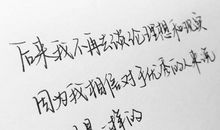 后来我不再去谈论理想和现实
因为我相信对于优秀的人来说
是一样的